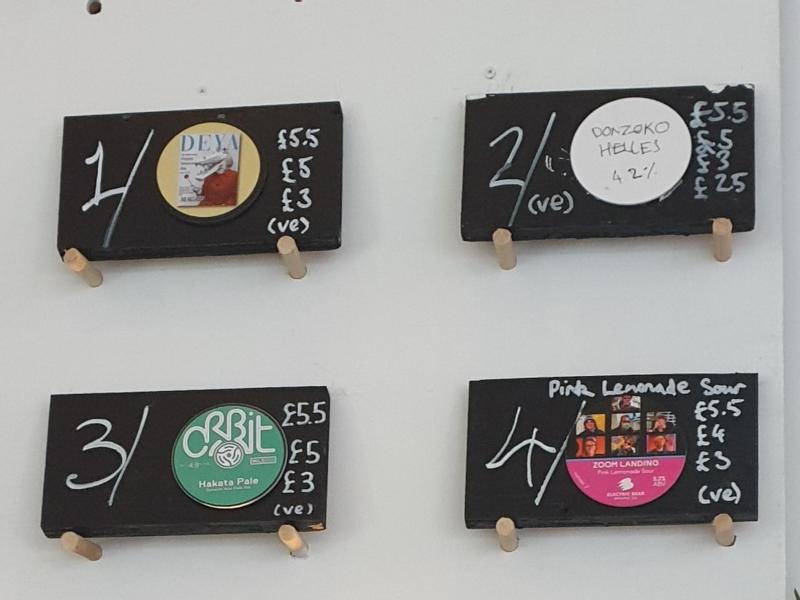 1/
DEYA
£5.5
£5
£3
(ve)
2/
(ve)
DONZOKO
HELLES
4.2%
£5.5
£5
£3
£25
3/
ORBIT
4.9
Hakata Pale
£5.5
£5
£3
(ve)
Pink Lemonade Sour
4/
ZOOM LANDING
Pink Lemonade Sour
5.2%
ABV
ELECTRIC BEAR
£5.5
£4
£3
(ve)